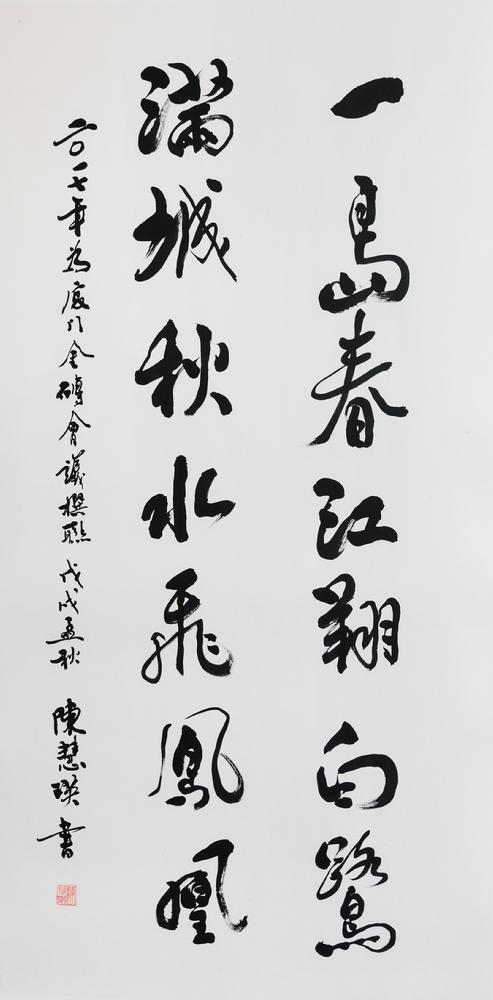 一島春江翔白鷺
滿城秋水飛鳳凰
二〇一七年為廈門金磚會議撰聯 戊戌孟秋 陳慧瑛書